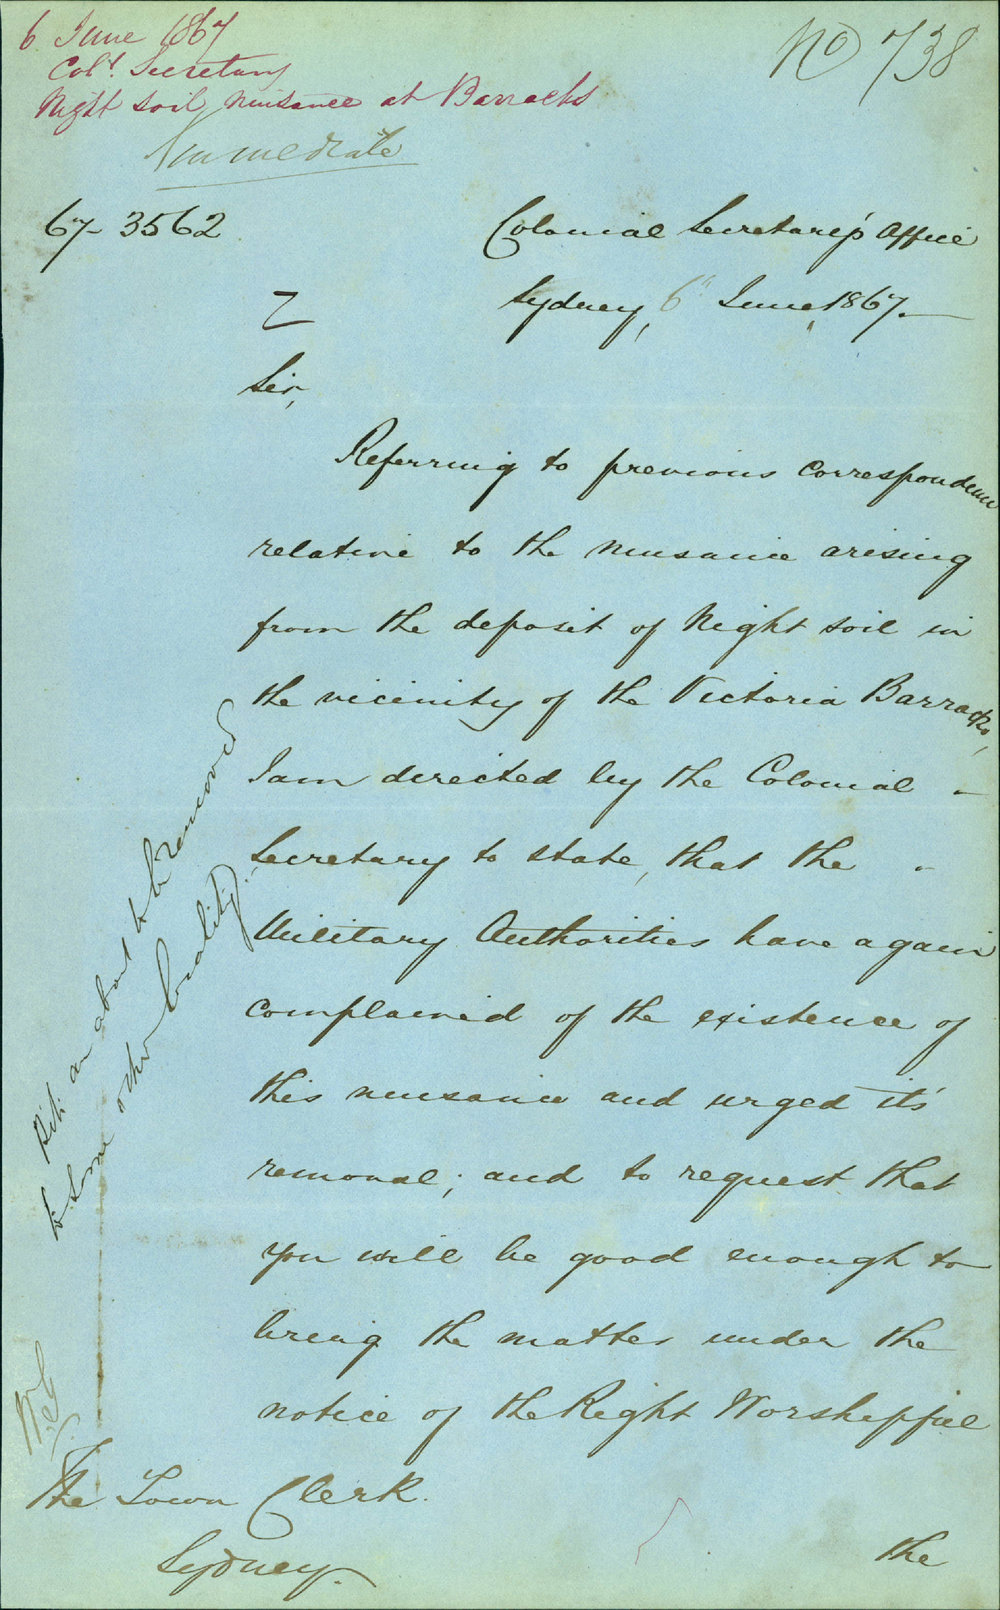 6 June 1867
No 738
Col.l Secretary
Night soil nuisance at Barracks
Immediate
67-3562
Colonial Secretary's Office
Sydney, 6th June, 1867.
Sir,
Referring to previous Correspondence
relative to the nuisance arising
from the deposit of Night soil in
the vicinity of the Victoria Barracks,
I am directed by the Colonial
Secretary to state, that the
Military Authorities have again
complained of the existence of
this nuisance and urged it's
removal; and to request that
you will be good enough to
bring the matter under the
notice of the Right Worshipful
The Town Clerk.
Sydney.
the
Pits are about to be removed
to some other locality.